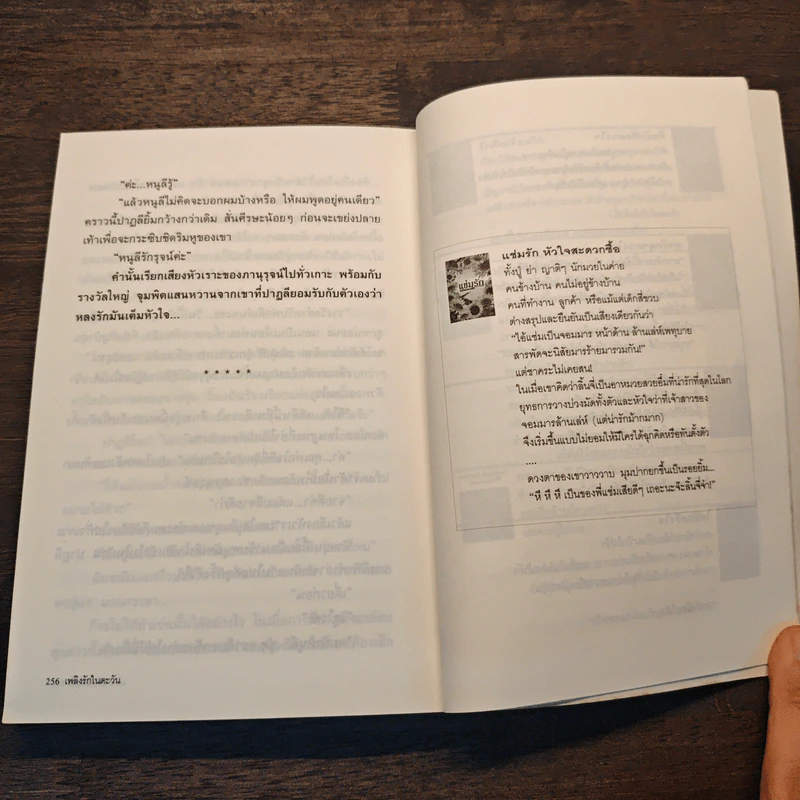 "ค่ะ...หนูลีรู้"
"แล้วหนูลีไม่คิดจะบอกผมบ้างหรือ ให้ผมพูดอยู่คนเดียว"
คราวนี้ปาฏลียิ้มกว้างกว่าเดิม สั่นศีรษะน้อยๆ ก่อนจะเขย่งปลาย
เท้าเพื่อจะกระซิบชิดริมหูของเขา
"หนูลีรักรุจน์ค่ะ"
คำนั้นเรียกเสียงหัวเราะของภานุรุจน์ไปทั่วเกาะ พร้อมกับ
รางวัลใหญ่ จุมพิตแสนหวานจากเขาที่ปาฏลียอมรับกับตัวเองว่า
หลงรักมันเต็มหัวใจ...
* * * * *
256 เพลิงรักในตะวัน
แช่มรัก
แช่มรัก หัวใจสะดวกซื้อ
ทั้งปู่ ย่า ญาติๆ นักมวยในค่าย
คนข้างบ้าน คนไม่อยู่ข้างบ้าน
คนที่ทำงาน ลูกค้า หรือแม้แต่เด็กสี่ขวบ
ต่างสรุปและยืนยันเป็นเสียงเดียวกันว่า
"ไอ้แช่มเป็นจอมมาร หน้าด้าน ล้านเล่ห์เพทุบาย
สารพัดจะนิสัยมารร้ายมารวมกัน!"
แต่ชาคระไม่เคยสน!
ในเมื่อเขาคิดว่าลิ้นจี่เป็นอาหมวยสวยอึ๋มที่น่ารักที่สุดในโลก
ยุทธการวางบ่วงมัดทั้งตัวและหัวใจว่าที่เจ้าสาวของ
จอมมารล้านเล่ห์ (แต่น่ารักม้ากมาก)
จึงเริ่มขึ้นแบบไม่ยอมให้มีใครได้ฉุกคิดหรือทันตั้งตัว
....
ดวงตาของเขาวาววาบ มุมปากยกขึ้นเป็นรอยยิ้ม...
"หึ หึ หึ เป็นของพี่แช่มเสียดีๆ เถอะนะจ๊ะลิ้นจี่จ๋า!"